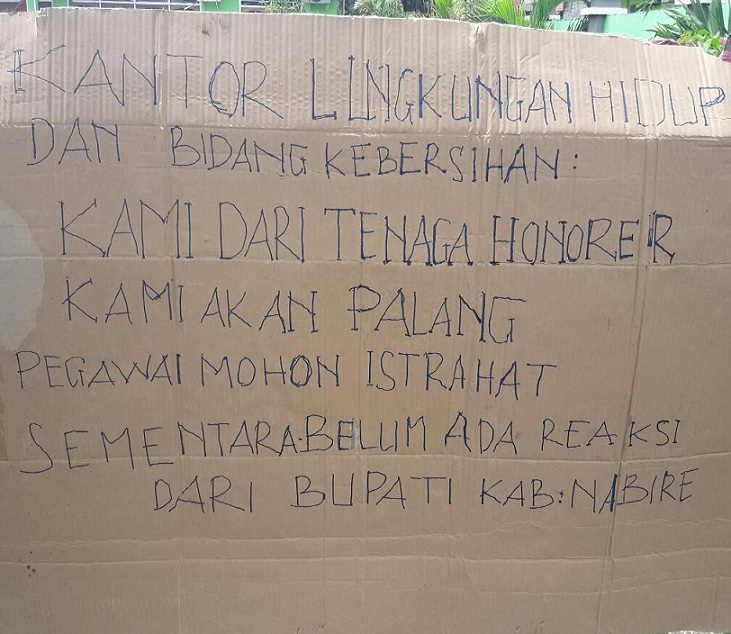 KANTOR LINGKUNGAN HIDUP
DAN BIDANG KEBERSIHAN:
KAMI DARI TENAGA HONORER
KAMI AKAN PALANG
PEGAWAI MOHON ISTRAHAT
SEMENTARA. BELUM ADA REAKSI
DARI BUPATI KAB: NABIRE